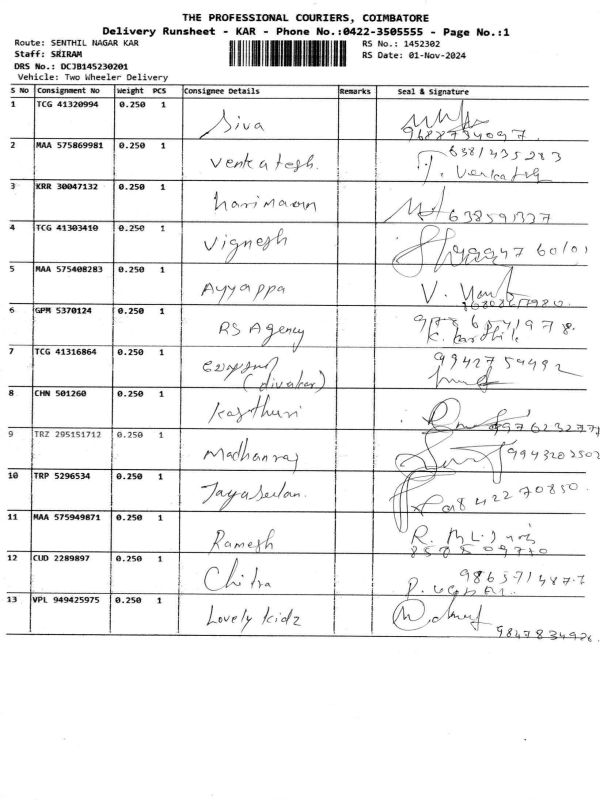 THE PROFESSIONAL COURIERS, COIMBATORE
Delivery Runsheet - KAR - Phone No.:0422-3505555 - Page No.:1
Route: SENTHIL NAGAR KAR RS No.: 1452302
Staff: SRIRAM RS Date: 01-Nov-2024
DRS No.: DCJB145230201
Vehicle: Two Wheeler Delivery
S No Consignment No Weight PCS Consignee Details Remarks Seal & Signature
1 TCG 41320994 0.250 1 Siva
2 MAA 575869981 0.250 1 Venkatesh.
6381435283
T. Venkatesh
3 KRR 30047132 0.250 1 harimaran
4 TCG 41303410 0.250 1 Vignesh
5 MAA 575408283 0.250 1 Ayyappa V.
6 GPM 5370124 0.250 1 RS Agency
7 TCG 41316864 0.250 1 9942759492
(divakar)
8 CHN 501260 0.250 1 Kasthuri 9976232777
9 TRZ 295151712 0.250 1 Madhanraj 9943202502
10 TRP 5296534 0.250 1 Jayaseelan. 842270850.
11 MAA 575949871 0.250 1 Ramesh R.
12 CUD 2289897 0.250 1 Chitra
13 VPL 949425975 0.250 1 Lovely kidz
9847834926.